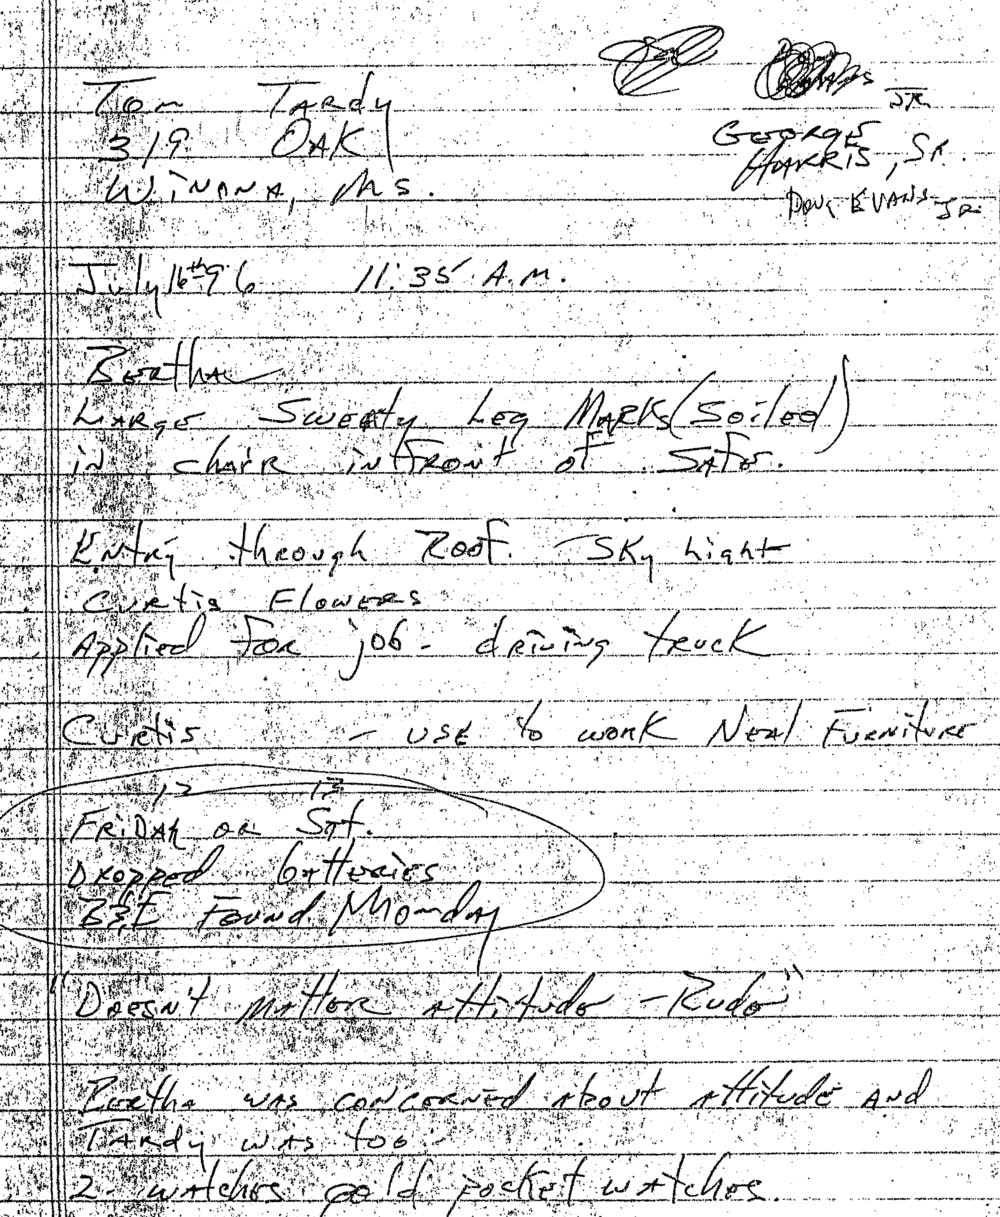 JR.
Tom Tardy
319 Oak
Winona, Ms.
George
Harris, Sr.
Doug Evans Jr.
July 16th 96 11:35 A.M.
Bertha
Large Sweaty Leg Marks (Soiled)
in chair intfront of Safe.
Entry through Roof. - Sky Light
Curtis Flowers
Applied for job - driving truck
Curtis - use to work Neal Furniture
12 13
Friday or Sat.
Dropped batteries
B&E Found Monday
"Doesn't matter attitude - Rude"
Bertha was concerned about attitude and
Tardy was too.
2- watches gold pocket watches.